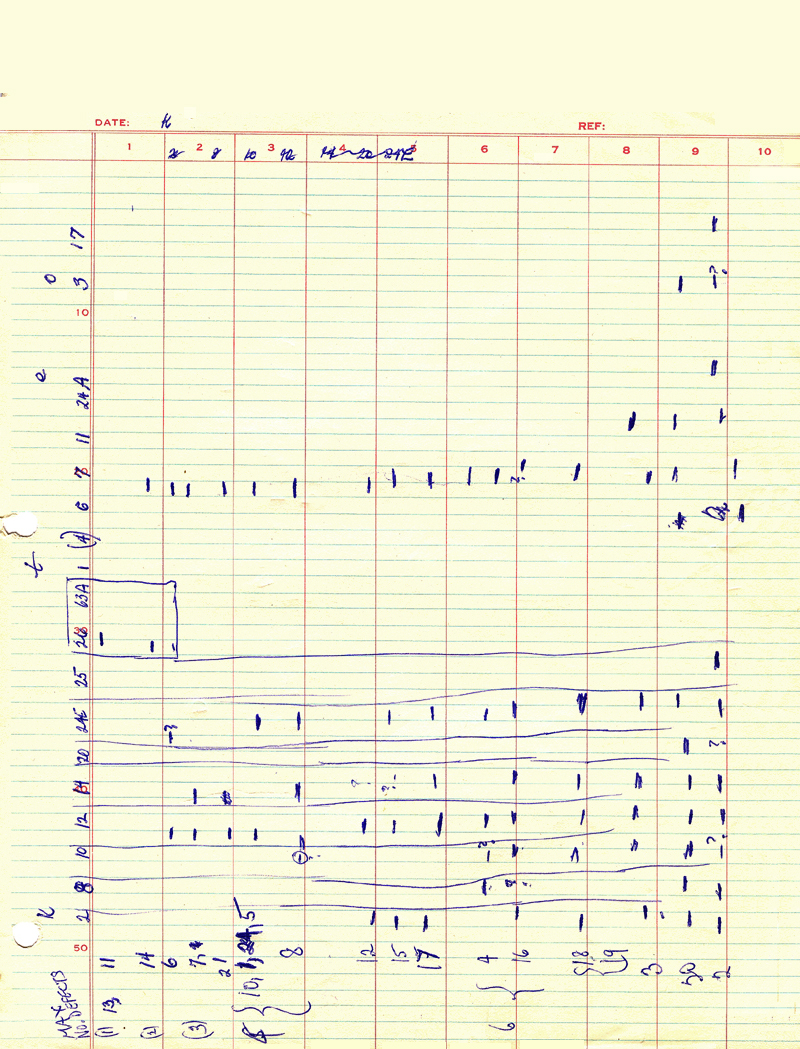 DATE: K REF:
1 2 3 4 5 6 7 8 9 10
8 10 12 14 20 24E
17
o 3
10
e 24A
11
7
6
(A)
t 1
63A
26
25
24E
20
14
12
10
8
K 2
50
MAX DEFECTS
NO.
(1) 13, 11
(2) 14
6
(3) 7,
21
{ 10, 1, 24, 5
8
12
15
17
6 { 4
16
{ 18
19
3
20
2